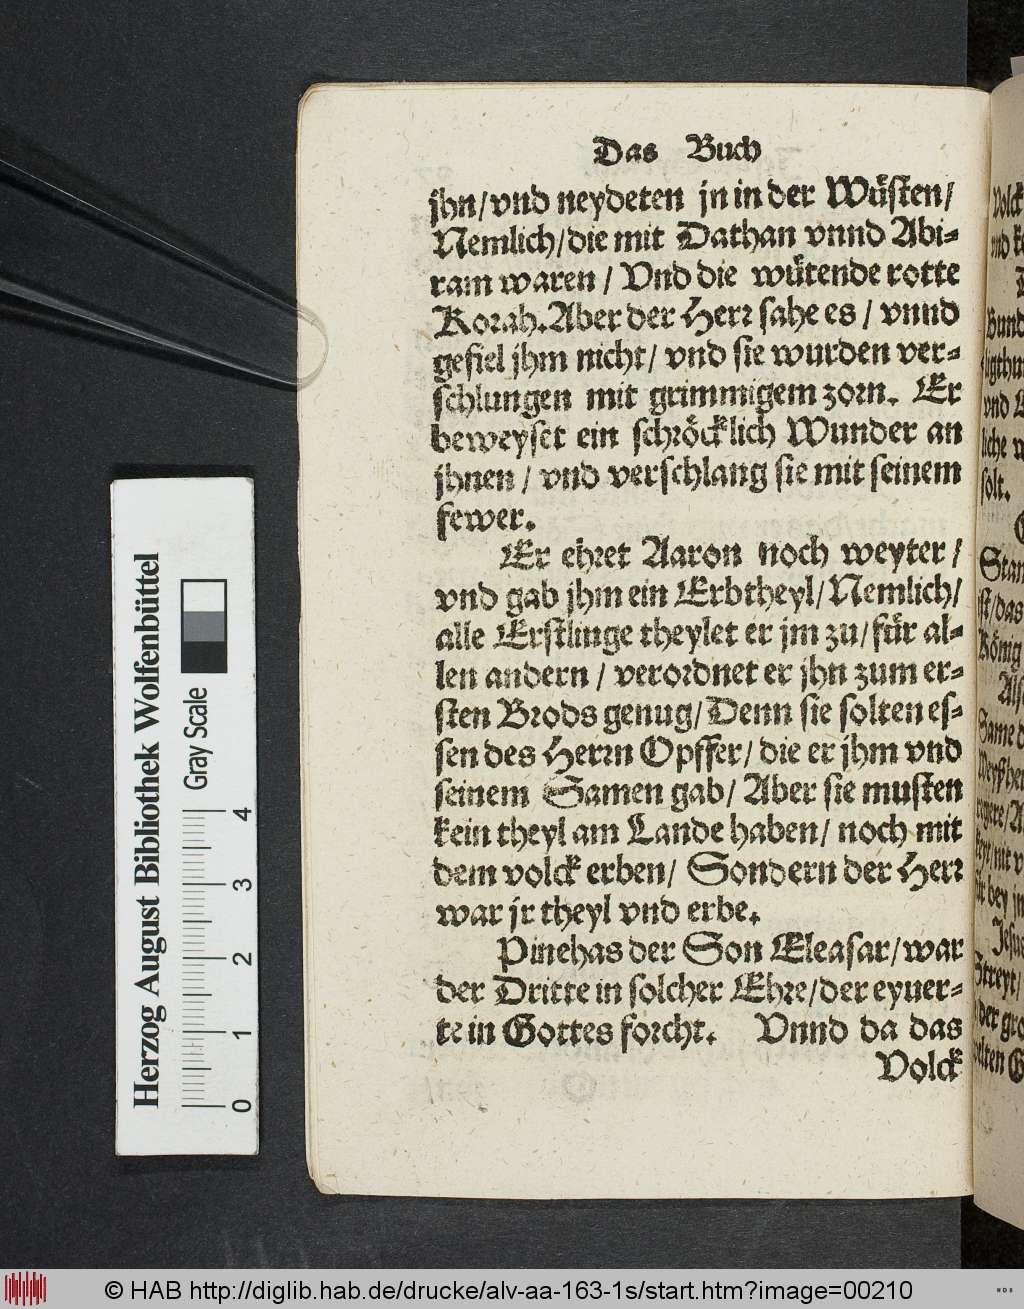 Das Buch
jhn/vnd neydeten jn in der Wüsten/
Nemlich/die mit Dathan vnnd Abi-
ram waren / Vnd die wütende rotte
Korah. Aber der Herr sahe es / vnnd
gefiel jhm nicht/ vnd sie wurden ver-
schlungen mit grimmigem zorn. Er
beweyset ein schröcklich Wunder an
jhnen / vnd verschlang sie mit seinem
fewer.
Er ehret Aaron noch weyter /
vnd gab jhm ein Erbtheyl/Nemlich/
alle Erstlinge theylet er jm zu/für al-
len andern / verordnet er jhn zum er-
sten Brods genug/Denn sie solten es-
sen des Herrn Opffer/ die er jhm vnd
seinem Samen gab/ Aber sie musten
kein theyl am Lande haben/ noch mit
dem volck erben/ Sondern der Herr
war jr theyl vnd erbe.
Pinehas der Son Eleasar/war
der Dritte in solcher Ehre/der eyuer-
te in Gottes forcht. Vnnd da das
Volck
Volck
Bund
vnd
liche
solt.
Stan
ist/das
König
Same
Jesu
Streyt/
der gro
Herzog August Bibliothek Wolfenbüttel
Gray Scale
0 1 2 3 4
© HAB http://diglib.hab.de/drucke/alv-aa-163-1s/start.htm?image=00210